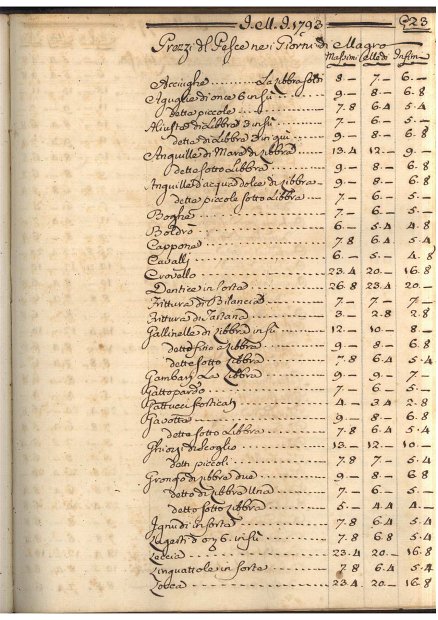 I. M. I. 1793 C 23
Prezzi del Pesce ne i Giorni di Magro
Massimi Medi Infimi
Acciughe La Libbra soldi 8 – 7 – 6 –
Aguglie di once 6 in sù 9 – 8 – 6.8
dette piccole 7.8 6.4 5.4
Aliuste di Libbra 3 in sù 7 – 6 – 5 –
dette di Libbra 3 in giù 9 – 8 – 6.8
Anguille di Mare di Libbra 13.4 12 – 9 –
dette sotto Libbra 9 – 8 – 6.8
Anguille d'acqua dolce di Libbra 9 – 8 – 6.8
dette piccole sotto Libbra 7 – 6 – 5 –
Boghe 7 – 6 – 5 –
Boldrò 6 – 5.4 4.8
Cappone 7.8 6.4 5.4
Cavalli 6 – 5 – 4.8
Crovello 23.4 20 – 16.8
Dentice in sorta 26.8 23.4 20 –
Frittura di Bilancia 7 – 7 – 7 –
Frittura di Tartana 3 – 2.8 2.8
Gallinelle di Libbra in sù 12 – 10 – 8 –
dette fino a Libbra 9 – 8 – 6.8
dette sotto Libbra 7.8 6.4 5.4
Gambari La Libbra 9 – 9 – 7 –
Gattopardo 7 – 6 – 5 –
Gattucci scorticati 4 – 3.4 2.8
Gavotta 9 – 8 – 6.8
dette sotto Libbra 7.8 6.4 5.4
Ghiozzi di scoglio 13 – 12 – 10 –
detti piccoli 7.8 7 – 5.4
Grongo di Libbra due 9 – 8 – 6.8
detto di Libbra Una 7 – 6 – 5 –
detto sotto Libbra 5 – 4.4 4 –
Ignudi in sorta 7.8 6.4 5.4
Lagesti d'on 6 in sù 7.8 6.8 5.4
Leccia 23.4 20 – 16.8
Linguattole in sorte 7.8 6.4 5.4
23.4 20 – 16.8